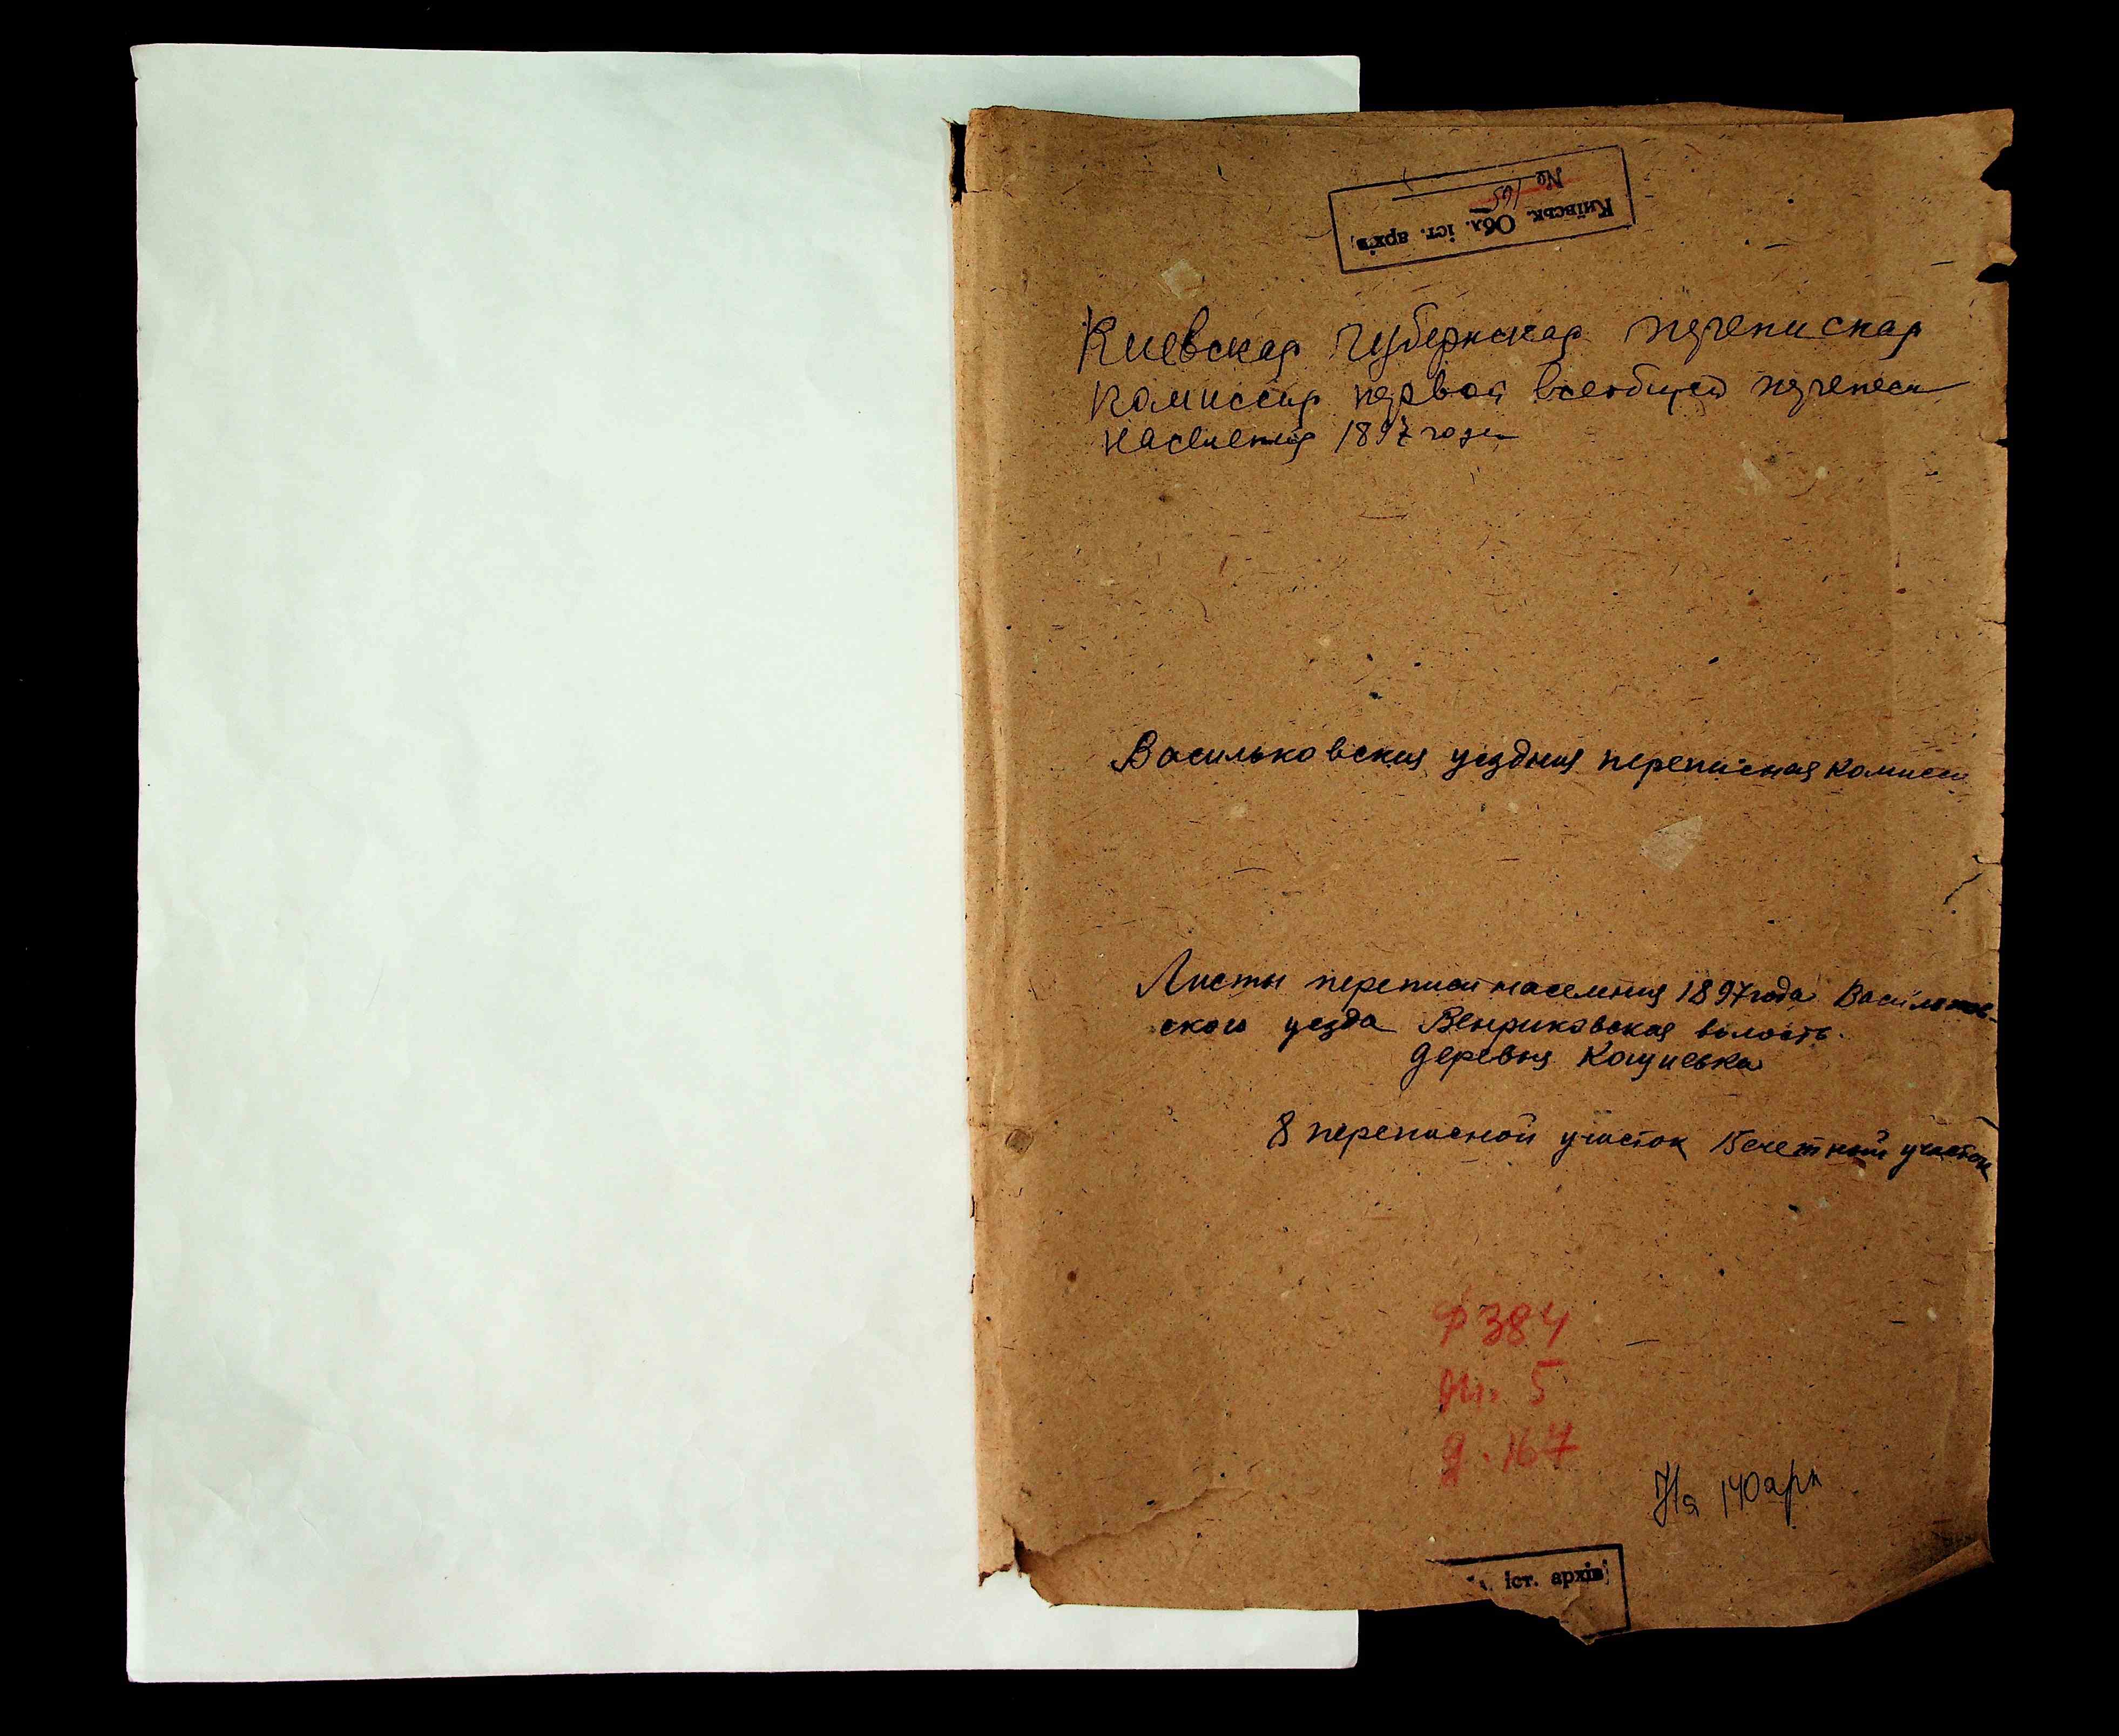 Київськ. Обл. іст. архів
№ 165
Киевская губернская переписная
комиссия первой всеобщей переписи
населения 1897 года
Васильковская уездная переписная комиссия
Листы переписи населения 1897 года Васильков-
ского уезда Венриковская волость.
деревня Кощиевка
8 переписной участок 15 счетный участок
Ф 384
оп. 5
д. 167
На 140 арк
іст. архів